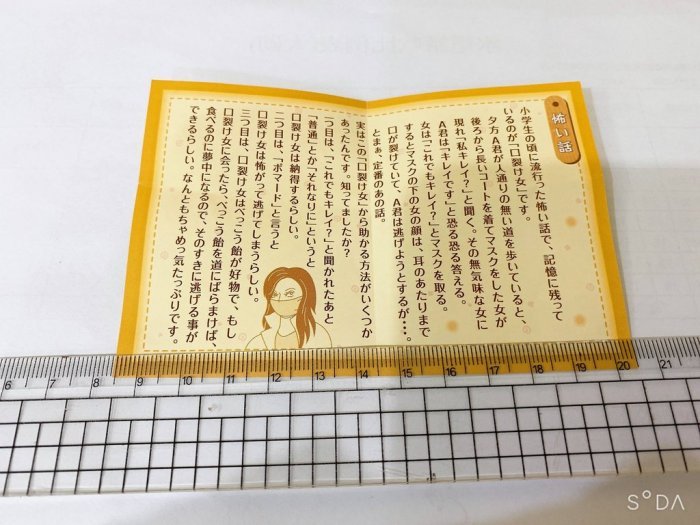 怖い話
小学生の頃に流行った怖い話で、記憶に残って
いるのが「口裂け女」です。
夕方A君が人通りの無い道を歩いていると、
後ろから長いコートを着てマスクをした女が
現れ「私キレイ?」と聞く。その無気味な女に
A君は「キレイです」と恐る恐る答える。
女は「これでもキレイ?」とマスクを取る。
するとマスクの下の女の顔は、耳のあたりまで
口が裂けていて、A君は逃げようとするが・・・。
とまぁ、定番のあの話。
実はこの「口裂け女」から助かる方法がいくつか
あったんです。知ってましたか?
一つ目は、「これでもキレイ?」と聞かれたあと
「普通」とか「それなりに」というと
口裂け女は納得するらしい。
二つ目は、「ポマード」と言うと
口裂け女は怖がって逃げてしまうらしい。
三つ目は、口裂け女はべっこう飴が好物で、もし
口裂け女に会ったら、べっこう飴を道にばらまけば、
食べるのに夢中になるので、そのすきに逃げる事が
できるらしい。なんともちゃめっ気たっぷりです。
6 7 8 9 10 11 12 13 14 15 16 17 18 19 20 21
SODA